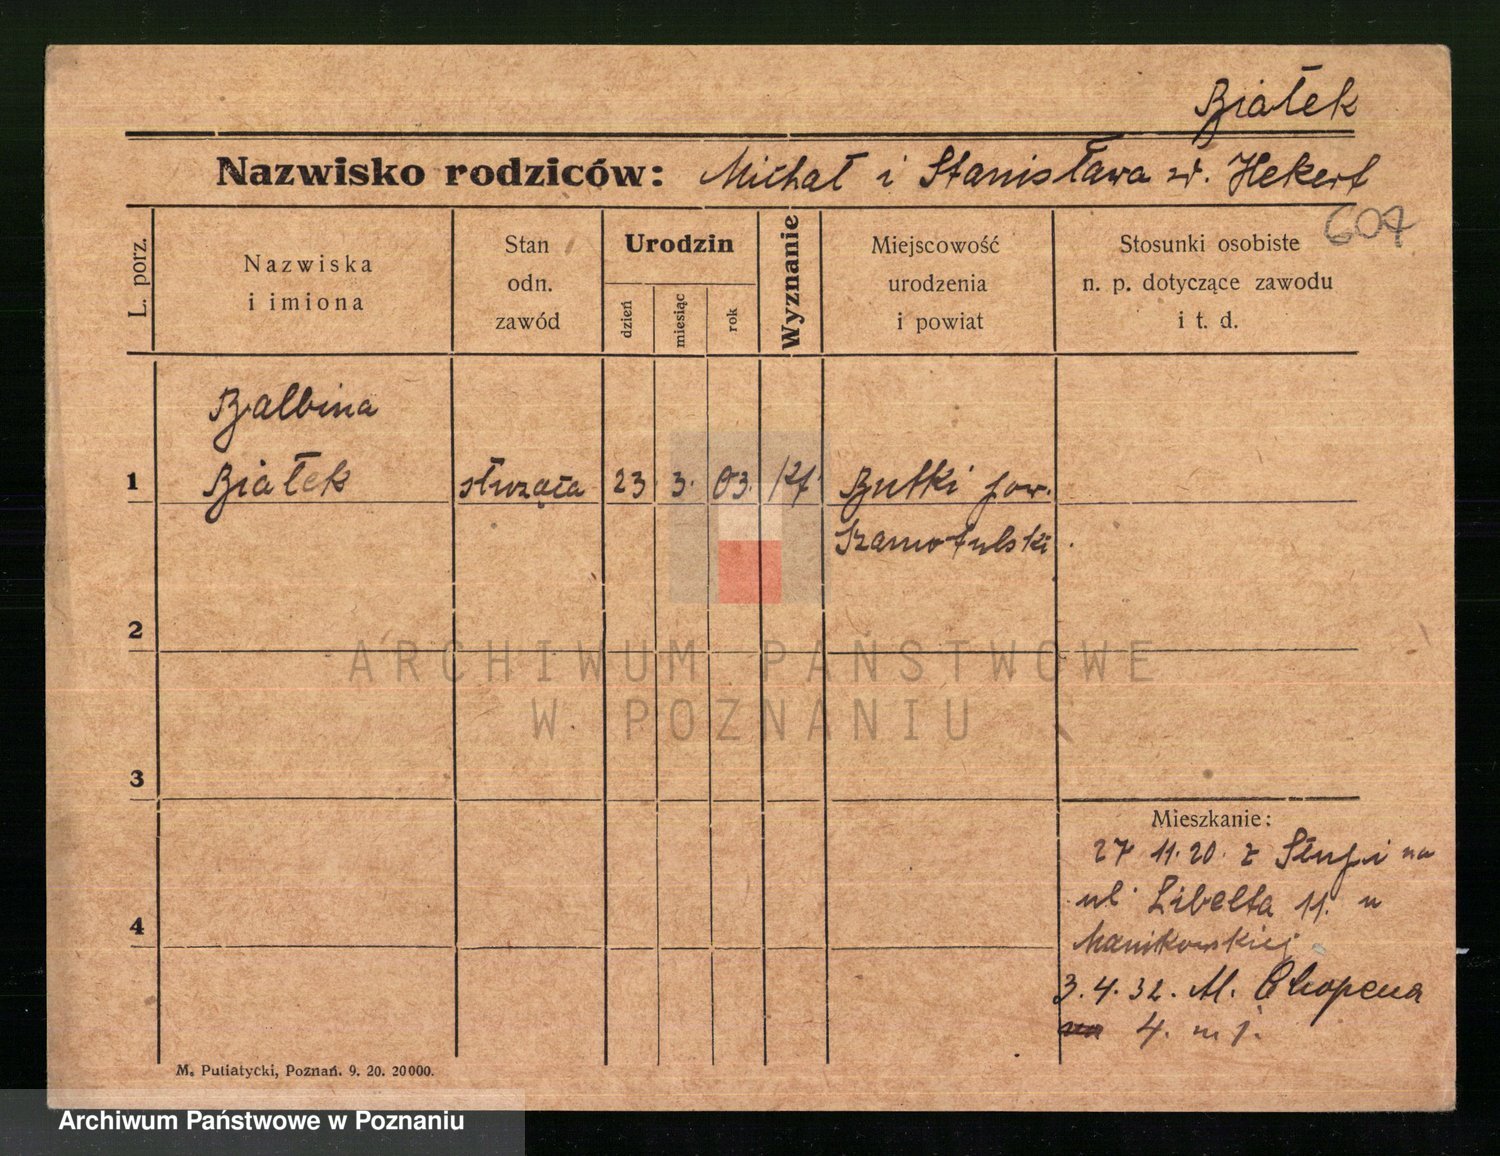 Białek
Nazwisko rodziców: Michał i Stanisława zd. Hekert
607
L. porz.
Nazwiska
i imiona
Stan
odn.
zawód
Urodzin
dzień
miesiąc
rok
Wyznanie
Miejscowość
urodzenia
i powiat
Stosunki osobiste
n. p. dotyczące zawodu
i t. d.
Balbina
1 Białek służąca 23 3. 03. Kt Butki pow.
Szamotulski.
2
3
4
Mieszkanie:
27 11.20. z Słupi na
ul Libelta 11. u
Manikowskiej
3.4.32. Al. Chopena
4. m 1.
M. Putiatycki, Poznań. 9. 20. 20000.
ARCHIWUM PAŃSTWOWE
W POZNANIU
Archiwum Państwowe w Poznaniu